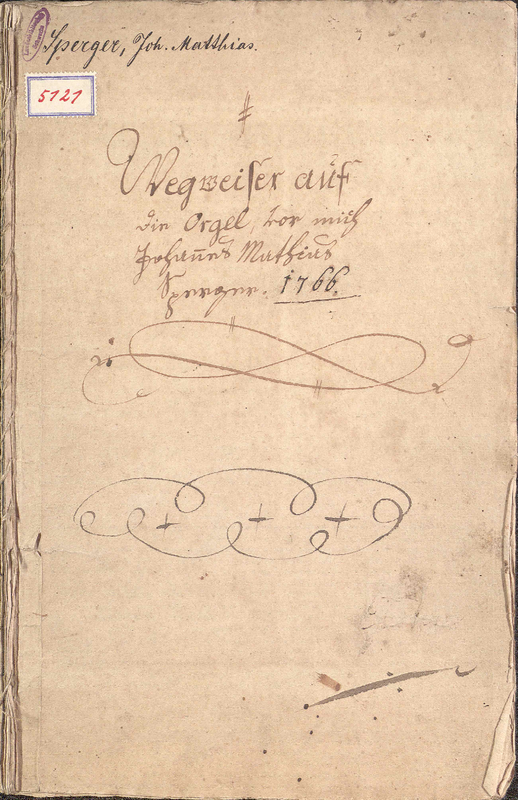 Sperger, Joh. Matthias.
5121
Wegweiser auf
die Orgel, vor mich
Johannes Mathias
Sperger. 1766.